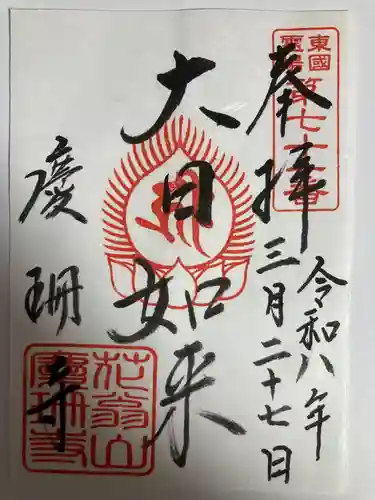 東國
靈場
第七十三番
奉拝
令和八年
三月二十七日
大日如来
慶珊寺
花翁山
慶珊寺